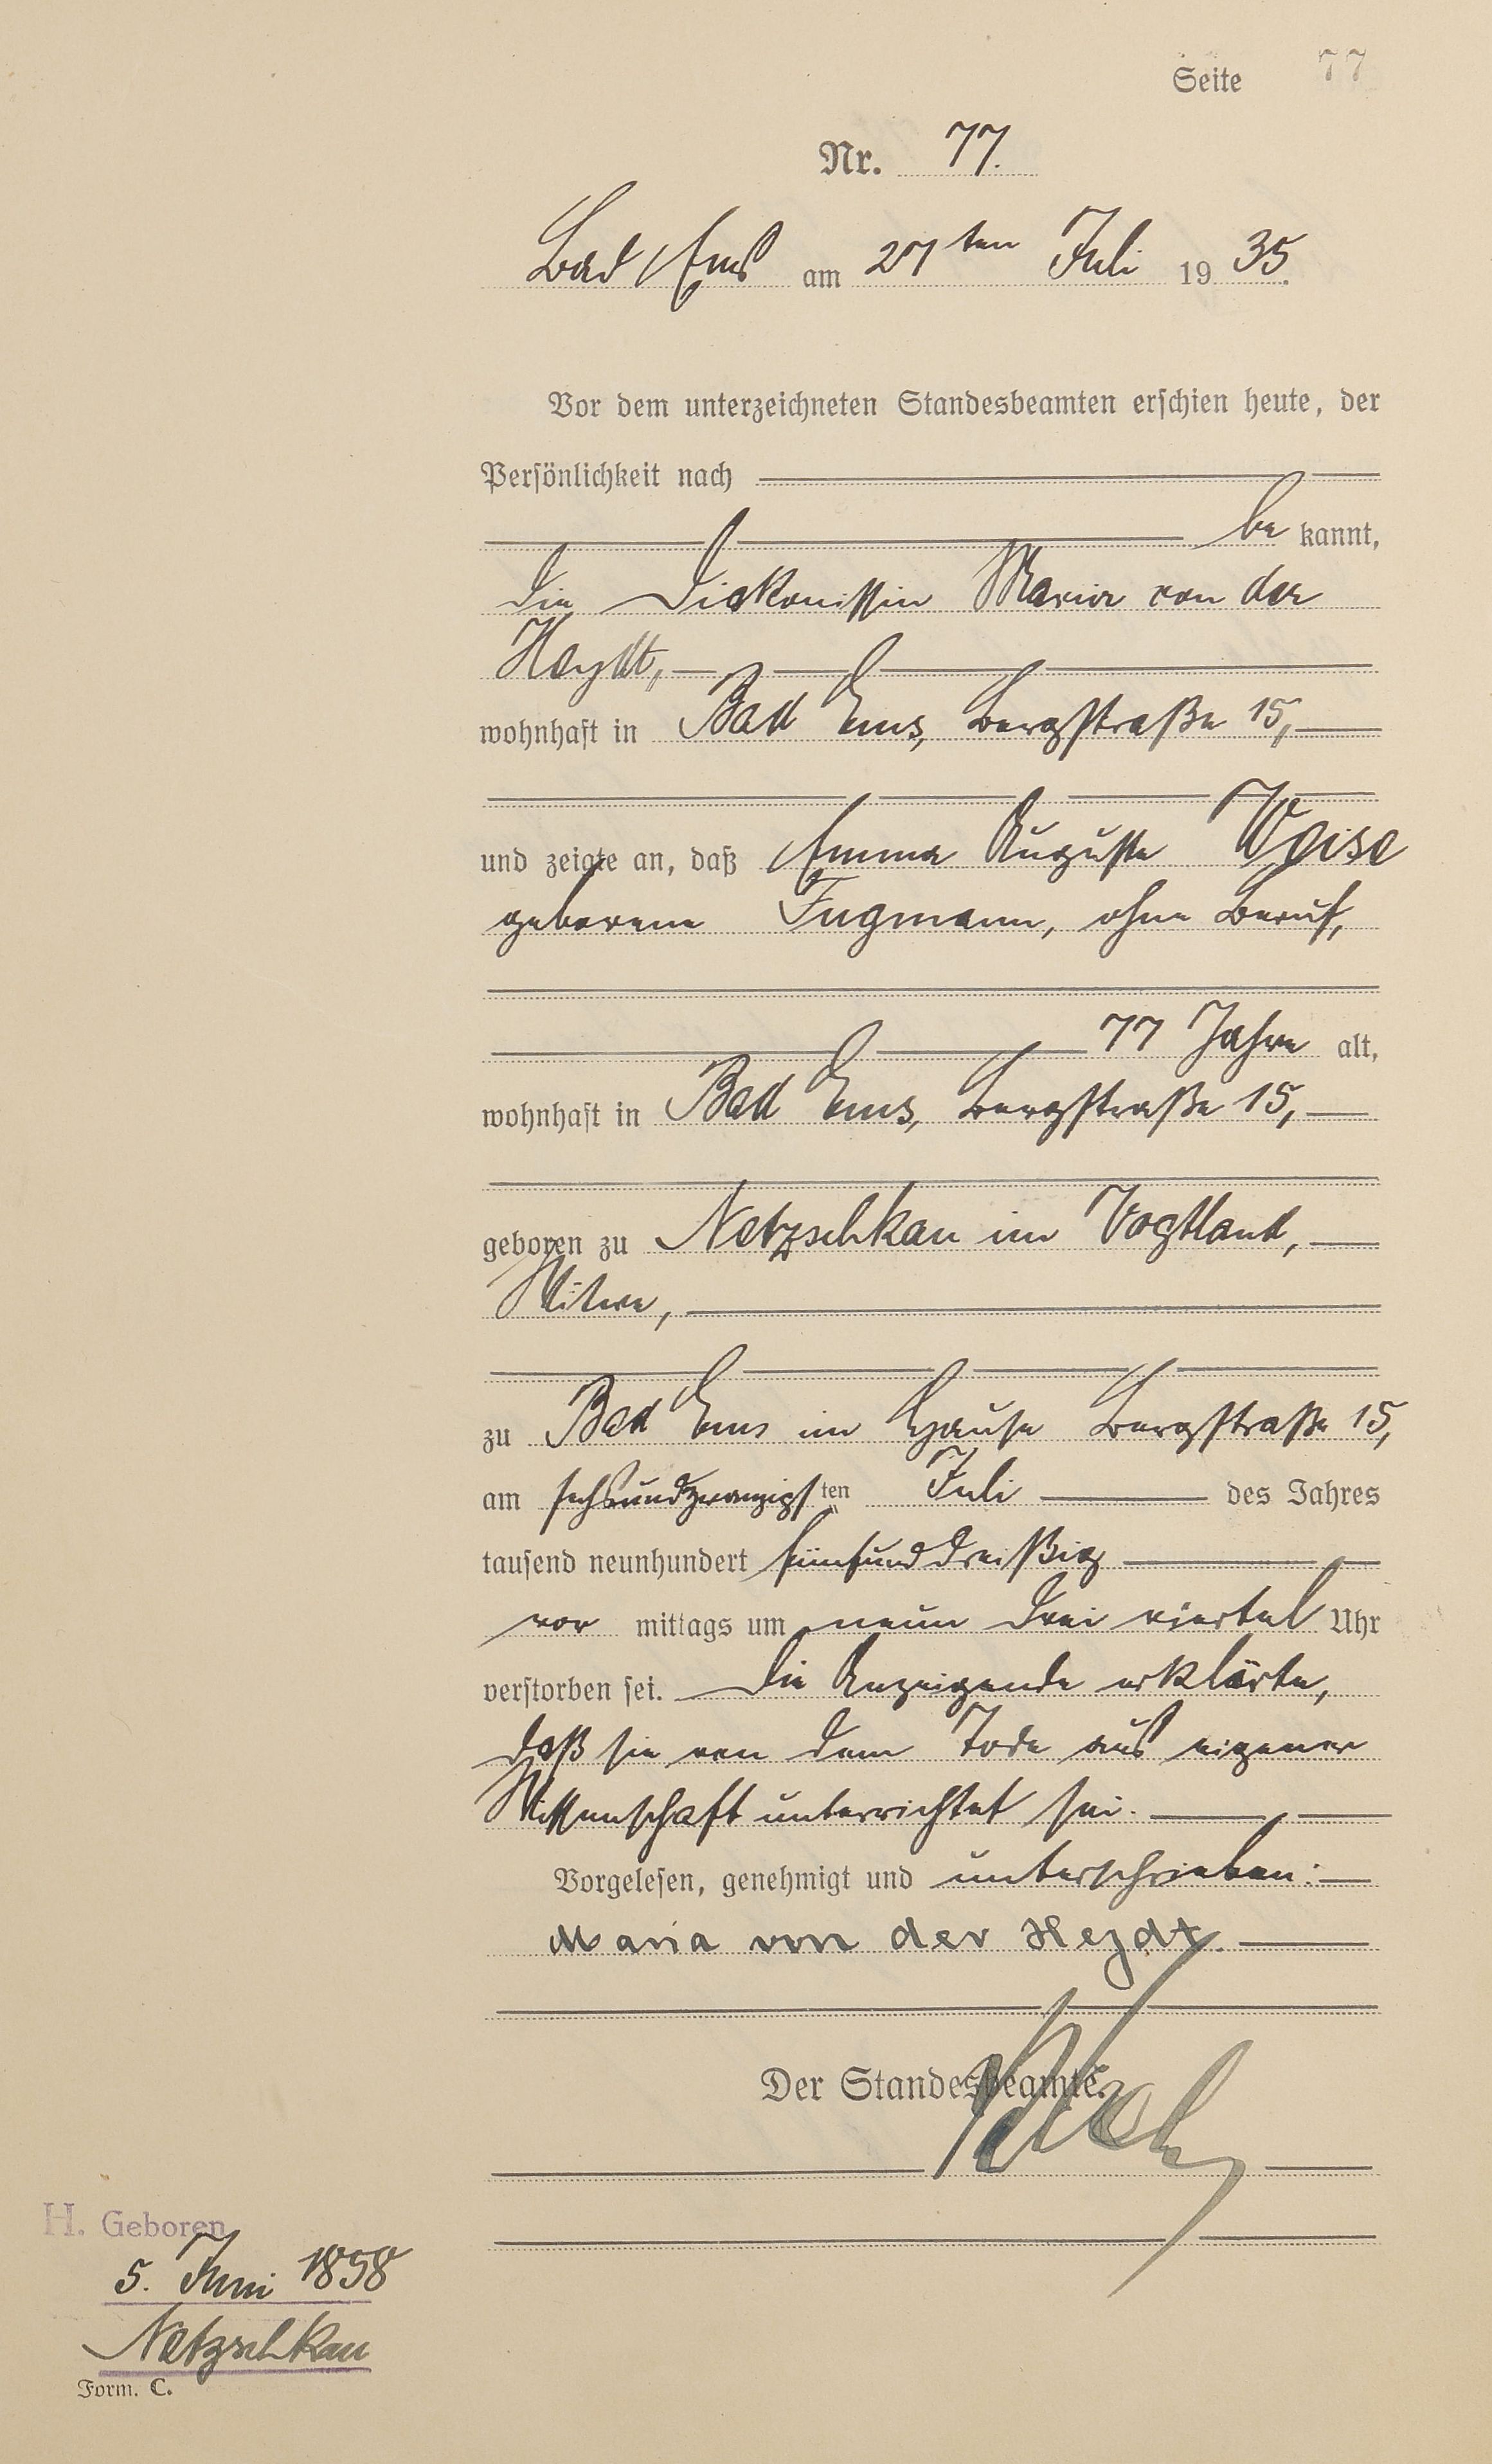 Seite 77
Nr. 77.
Bad Ems am 27ten Juli 1935.
Vor dem unterzeichneten Standesbeamten erschien heute, der
Persönlichkeit nach
bekannt,
die Diakonissin Maria von der
Heydt,
wohnhaft in Bad Ems, Bergstraße 15,
und zeigte an, daß Emma Auguste Weise
geborene Fugmann, ohne Beruf,
77 Jahre alt,
wohnhaft in Bad Ems, Bergstraße 15,
geboren zu Netzschkau im Vogtland,
Witwe,
zu Bad Ems im Hause Bergstraße 15,
am sechsundzwanzigsten Juli des Jahres
tausend neunhundert fünfunddreißig
vor mittags um neun drei viertel Uhr
verstorben sei. Die Anzeigende erklärte,
daß sie von dem Tode aus eigener
Wissenschaft unterrichtet sei.
Vorgelesen, genehmigt und unterschrieben:
Maria von der Heydt.
Der Standesbeamte.
H. Geboren
5. Juni 1858
Netzschkau
Form. C.